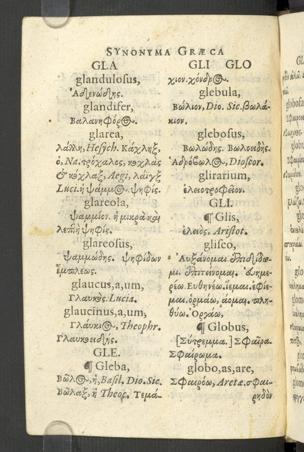 SYNONYMA GRÆCA
GLA
glandulosus,
Ἀδενώδης.
glandifer,
Βαλανηφόρος.
glarea,
λάπη, Hesych. Κάχληξ,
ὁ. Na. τρόχαλος, κοχλὰς
& κόχλαξ, Aegi, λάϊγξ
Luci. ἡ ψάμμος. ψηφίς.
glareola,
ψαμμίον. ἡ μικρὰ καὶ
λεπτὴ ψηφίς.
glareosus,
ψαμμώδης. ψηφίδων
ἔμπλεως.
glaucus,a,um,
Γλαυκὸς. Lucia.
glaucinus,a,um,
Γλαύκινος. Theophr.
Γλαυκοειδής.
GLE.
¶ Gleba,
Βῶλος, ἡ, Basil, Dio. Sic.
Βῶλαξ, ἡ Theop. Τεμά-
GLI GLO
χιον. χόνδρος.
glebula,
Βώλιον, Dio. Sic. βωλά-
κιον.
glebosus,
Βωλώδης. Βωλοειδὴς.
Ἁδρόβωλος, Dioscor.
glirarium,
ἐλειοτροφεῖον.
GLI.
¶ Glis,
ἐλειὸς. Aristot.
glisco,
Αὐξάνομαι. ἐπιδίδωμι.
Εὐθηνέω. ἵεμαι. ἐφίε-
μαι. ὁρμάω, ἀομαι. πλη-
θύω. Ὀργάω,
¶ Globus,
[Σύστρεμμα.] Σφαῖρα.
Σφαίρωμα.
globo,as,are,
Σφαιρόω, Aretæ. σφαι-
ρηδὸν